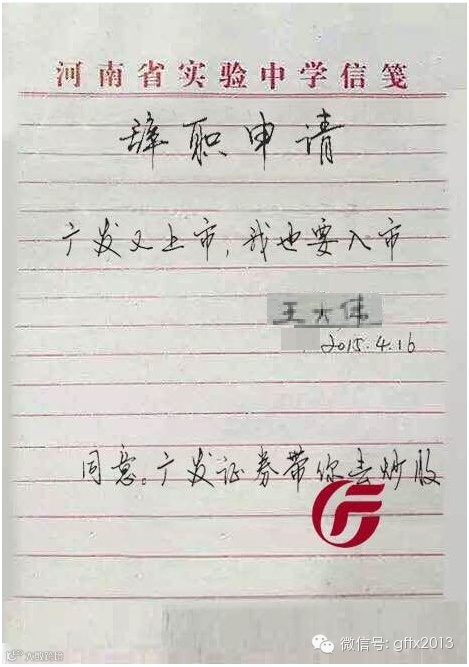 河南省实验中学信笺
辞职申请
广发又上市,我也要入市
王大伟
2015.4.16
同意。广发证券带你去炒股
微信号:
大数跨境